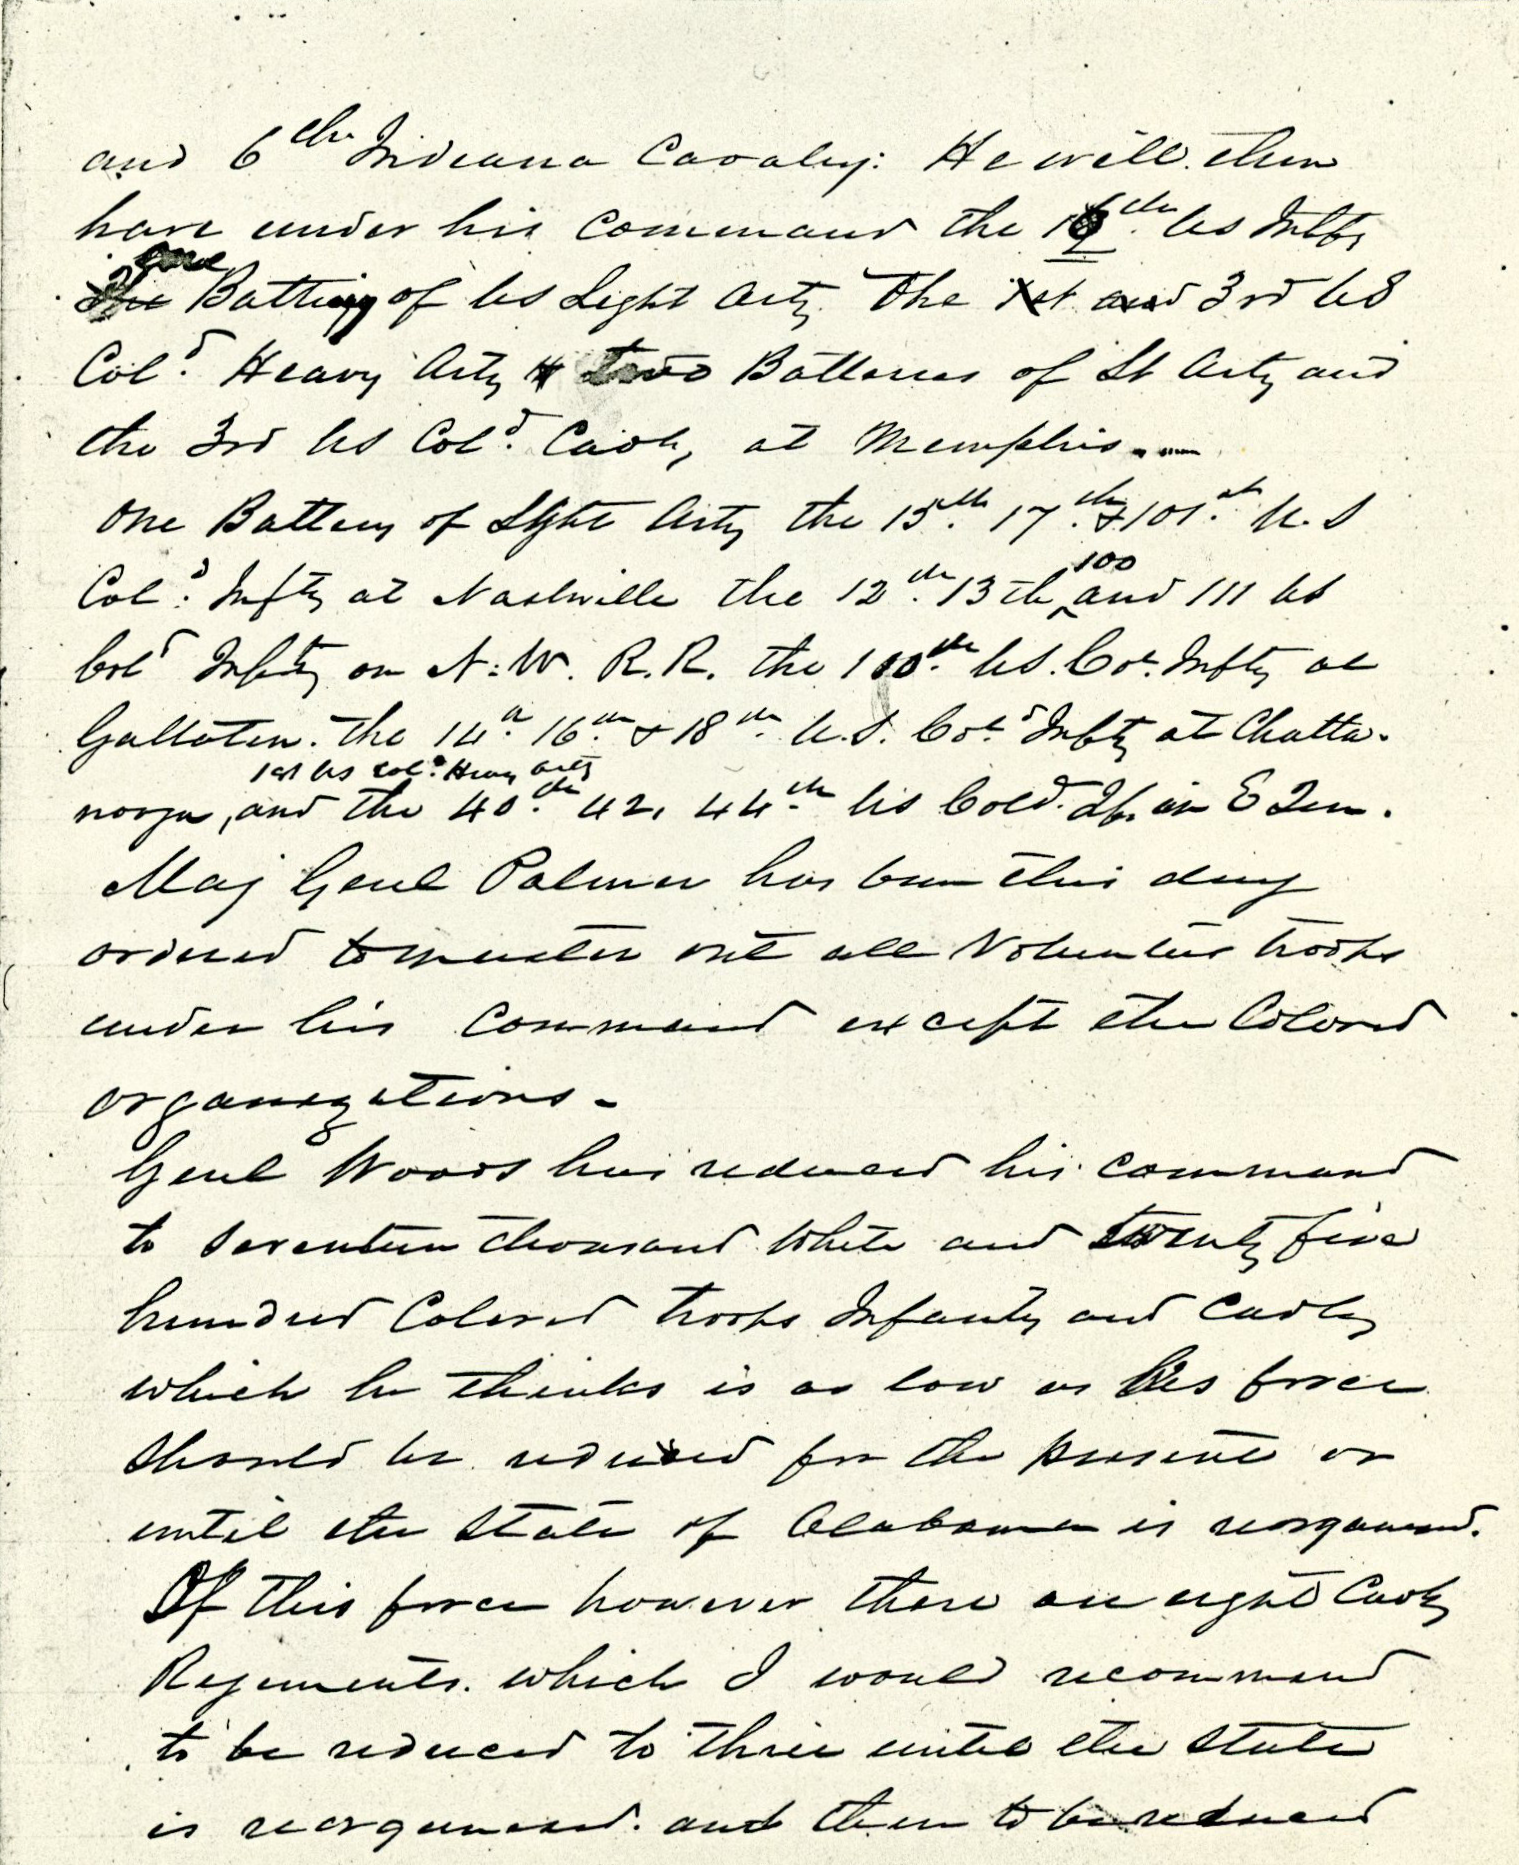 and 6th Indiana Cavalry: He will then
have under his command the 16th US Inftry
one Battery of US Light Arty The 1st and 3rd US
Cold Heavy Arty two Batteries of Lt Arty and
the 3rd US Cold Cavly, at Memphis.—
One Battery of Light Arty the 15th 17th & 101st U.S
Cold Infty at Nashville the 12th 13th 100 and 111 US
Cold Infty on N.W. R.R. the 100th US. Cold Infty at
Gallatin. The 14th 16th & 18th U.S. Cold Infty at Chatta-
1st US Cold Heavy Arty
nooga, and the 40th 42, 44th US Cold. If. in E Ten.
Maj Genl Palmer has been this day
ordered to muster out all Volunteer troops
under his command except the Colored
organizations -
Genl Woods has reduced his command
to seventeen thousand White and twenty five
hundred Colored troops Infanty and Cavly
which he thinks is as low as his force
should be reduced for the present or
until the State of Alabama is reorganized.
Of this force however there are eight Cavly
Regiments. which I would recommend
to be reduced to three until the State
is reorganized. and then to be reduced